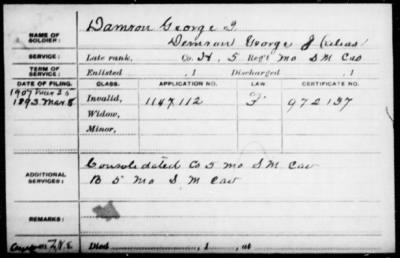 NAME OF SOLDIER: Damron George J.
Demran George J (alias)
SERVICE: Late rank, Co. H, 5 Reg't Mo S M Cav
TERM OF SERVICE: Enlisted , 1 Discharged , 1
DATE OF FILING. CLASS. APPLICATION NO. LAW CERTIFICATE NO.
1907 Mar 25
1893 Mar 8 Invalid, 1147.112 F 972137
Widow,
Minor,
ADDITIONAL SERVICES: Consolidated Co 5 Mo S M Cav
B 5" Mo S M Cav
REMARKS:
Died , 1 , at